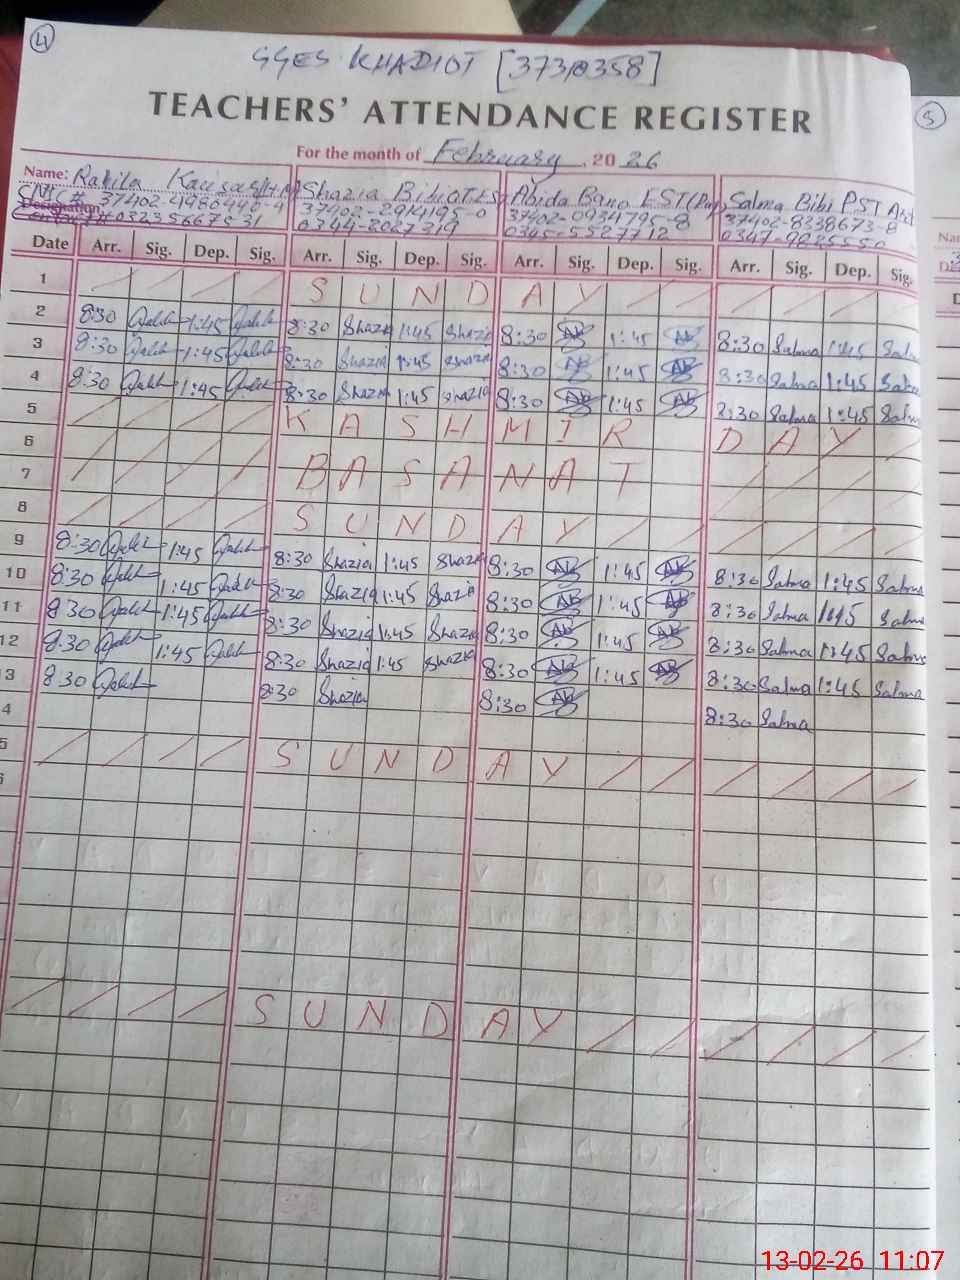 4
GGES KHADIOT [37310358]
TEACHERS' ATTENDANCE REGISTER
5
For the month of February 2026
Name: Rakila Kausar Shazia Bibi Abida Bano EST Salma Bibi PST
CNIC # 37402-2914195-0 37402-0934795-8 37402-8238673-8
Designation 0344-2027219 0345-5527712
Date Arr. Sig. Dep. Sig. Arr. Sig. Dep. Sig. Arr. Sig. Dep. Sig. Arr. Sig. Dep. Sig.
1 S U N D A Y
2 8:30 1:45 8:30 Shazia 1:45 Shazia 8:30 AB 1:45 AB 8:30 Salma 1:45 Salma
3 8:30 1:45 8:30 Shazia 1:45 Shazia 8:30 AB 1:45 AB 8:30 Salma 1:45 Salma
4 8:30 1:45 8:30 Shazia 1:45 Shazia 8:30 AB 1:45 AB 8:30 Salma 1:45 Salma
5 K A S H M I R D A Y
6 B A S A N A T
7
8 S U N D A Y
9 8:30 1:45 8:30 Shazia 1:45 Shazia 8:30 AB 1:45 AB 8:30 Salma 1:45 Salma
10 8:30 1:45 8:30 Shazia 1:45 Shazia 8:30 AB 1:45 AB 8:30 Salma 1:45 Salma
11 8:30 1:45 8:30 Shazia 1:45 Shazia 8:30 AB 1:45 AB 8:30 Salma 1:45 Salma
12 8:30 1:45 8:30 Shazia 1:45 Shazia 8:30 AB 1:45 AB 8:30 Salma 1:45 Salma
13 8:30 8:30 Shazia 8:30 AB 8:30 Salma
4
5 S U N D A Y
6
S U N D A Y
13-02-26 11:07